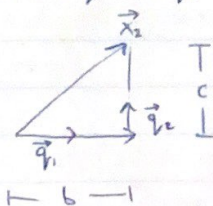 x⃗₂
c
q⃗₂
q⃗₁
b